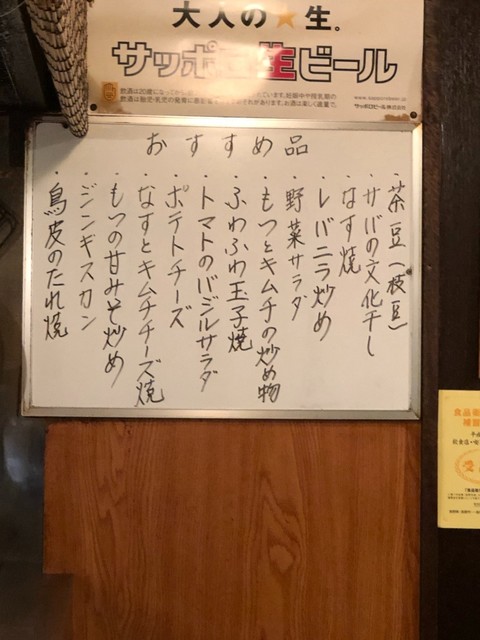 大人の★生。
サッポロ生ビール
飲酒は20歳になってから。
www.sapporobeer.jp
サッポロビール株式会社
おすすめ品
・茶豆(枝豆)
・サバの文化干し
・なす焼
・レバニラ炒め
・野菜サラダ
・もつとキムチの炒め物
・ふわふわ玉子焼
・トマトのバジルサラダ
・ポテトチーズ
・なすとキムチチーズ焼
・もつの甘みそ炒め
・ジンギスカン
・鳥皮のたれ焼